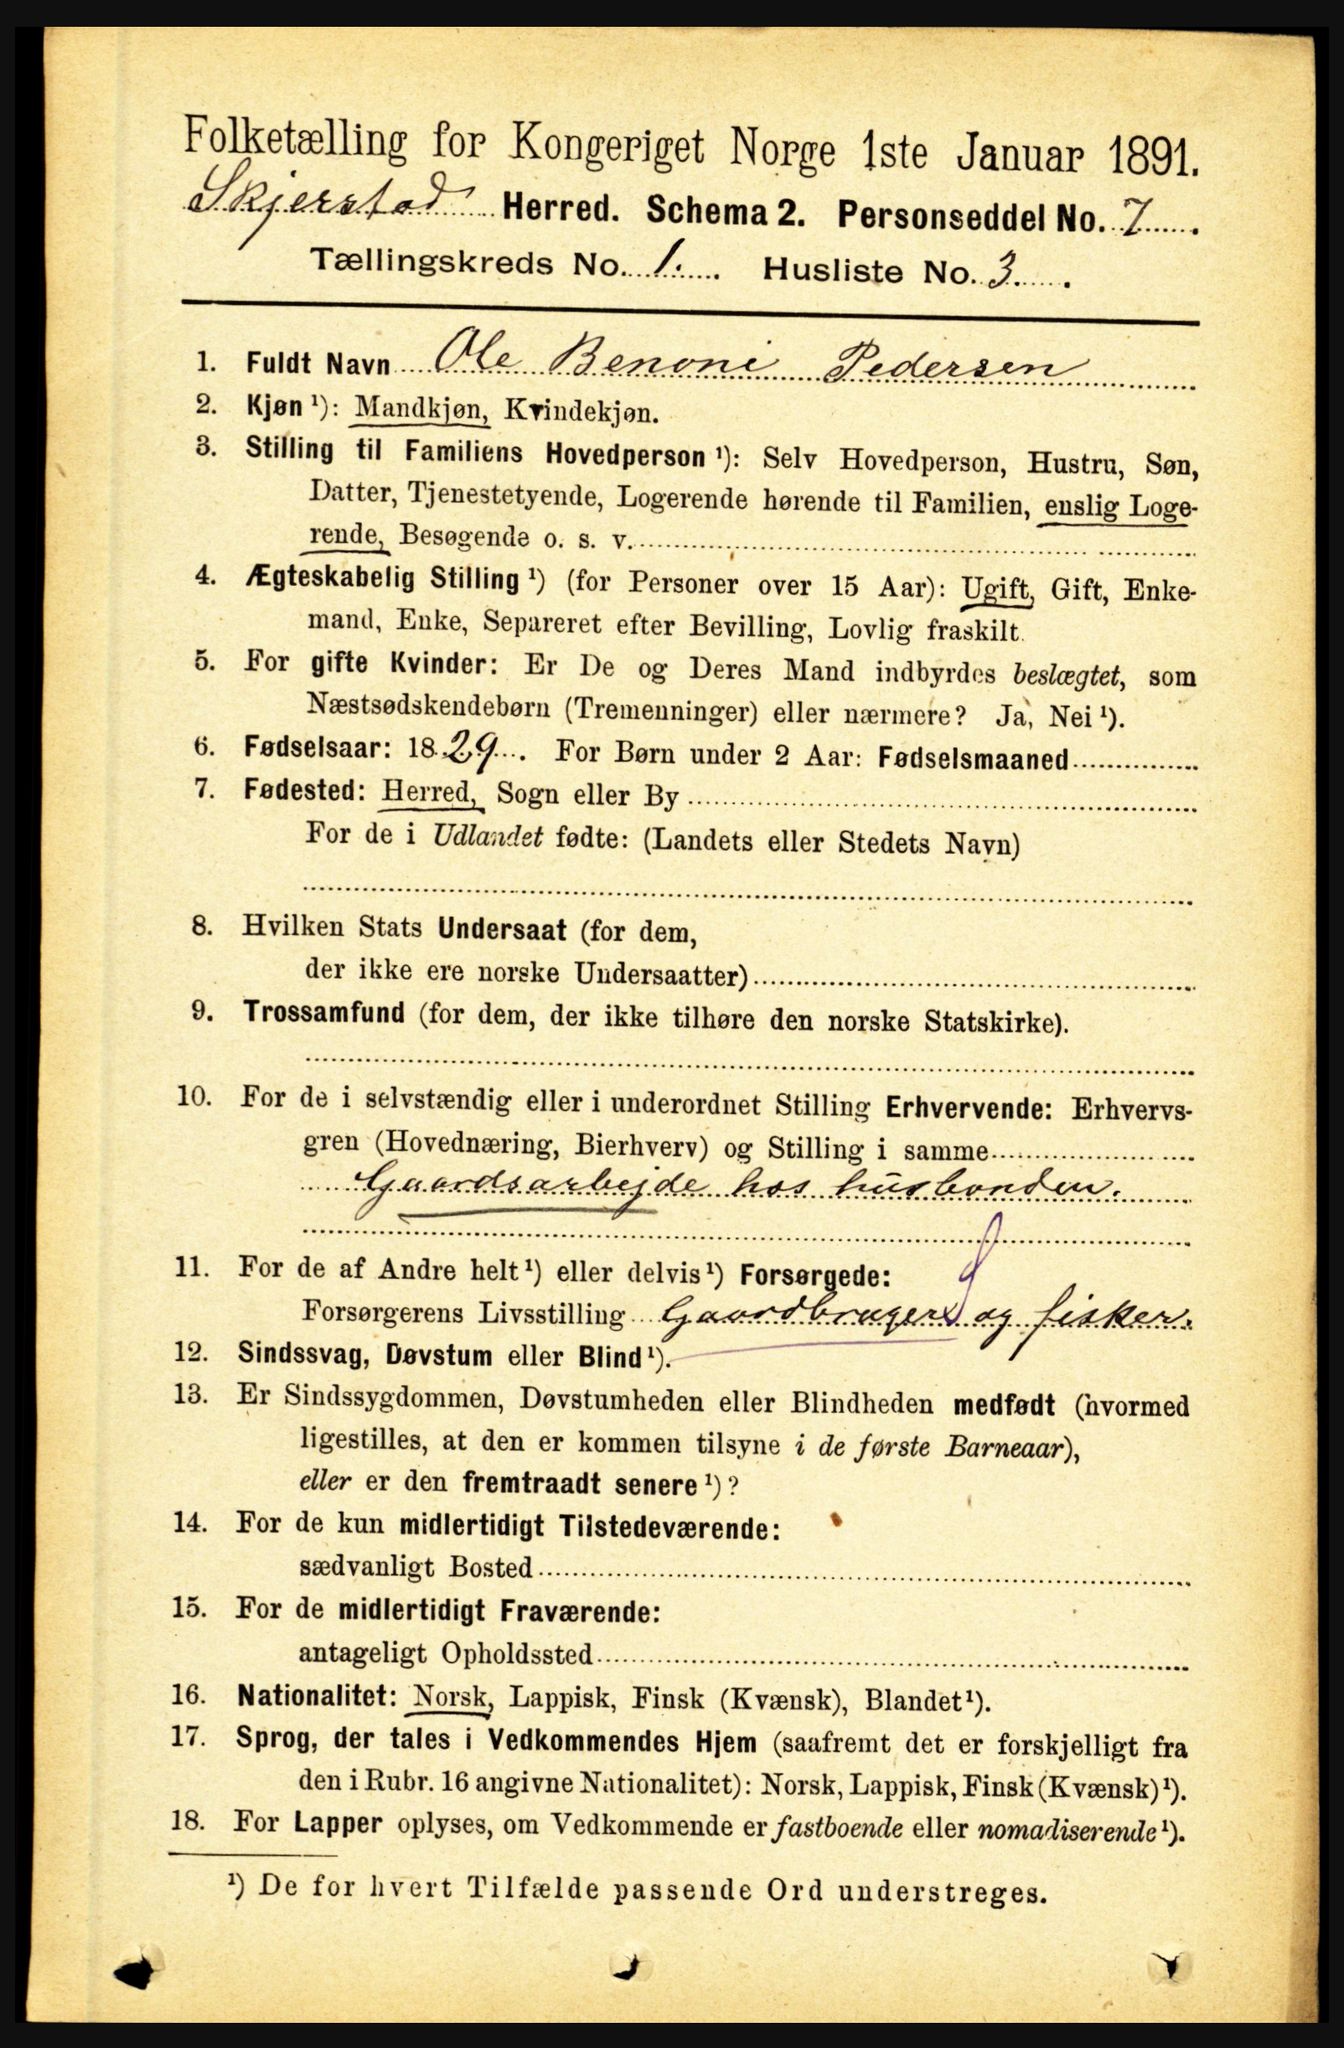 Folketælling for Kongeriget Norge 1ste Januar 1891.
Skjerstad Herred. Schema 2. Personseddel No. 7
Tællingskreds No. 1. Husliste No. 3.
1. Fuldt Navn Ole Benoni Pedersen
2. Kjøn ¹): Mandkjøn, Kvindekjøn.
3. Stilling til Familiens Hovedperson ¹): Selv Hovedperson, Hustru, Søn,
Datter, Tjenestetyende, Logerende hørende til Familien, enslig Loge-
rende, Besøgende o. s. v.
4. Ægteskabelig Stilling ¹) (for Personer over 15 Aar): Ugift, Gift, Enke-
mand, Enke, Separeret efter Bevilling, Lovlig fraskilt.
5. For gifte Kvinder: Er De og Deres Mand indbyrdes beslægtet, som
Næstsødskendebørn (Tremenninger) eller nærmere? Ja, Nei ¹).
6. Fødselsaar: 1829. For Børn under 2 Aar: Fødselsmaaned
7. Fødested: Herred, Sogn eller By
For de i Udlandet fødte: (Landets eller Stedets Navn)
8. Hvilken Stats Undersaat (for dem,
der ikke ere norske Undersaatter)
9. Trossamfund (for dem, der ikke tilhøre den norske Statskirke).
10. For de i selvstændig eller i underordnet Stilling Erhvervende: Erhvervs-
gren (Hovednæring, Bierhverv) og Stilling i samme
Gaardsarbejde hos husbonden.
11. For de af Andre helt ¹) eller delvis ¹) Forsørgede:
Forsørgerens Livsstilling Gaardbruger og fisker.
12. Sindssvag, Døvstum eller Blind ¹).
13. Er Sindssygdommen, Døvstumheden eller Blindheden medfødt (hvormed
ligestilles, at den er kommen tilsyne i de første Barneaar),
eller er den fremtraadt senere ¹)?
14. For de kun midlertidigt Tilstedeværende:
sædvanligt Bosted
15. For de midlertidigt Fraværende:
antageligt Opholdssted
16. Nationalitet: Norsk, Lappisk, Finsk (Kvænsk), Blandet ¹).
17. Sprog, der tales i Vedkommendes Hjem (saafremt det er forskjelligt fra
den i Rubr. 16 angivne Nationalitet): Norsk, Lappisk, Finsk (Kvænsk) ¹).
18. For Lapper oplyses, om Vedkommende er fastboende eller nomadiserende ¹).
¹) De for hvert Tilfælde passende Ord understreges.